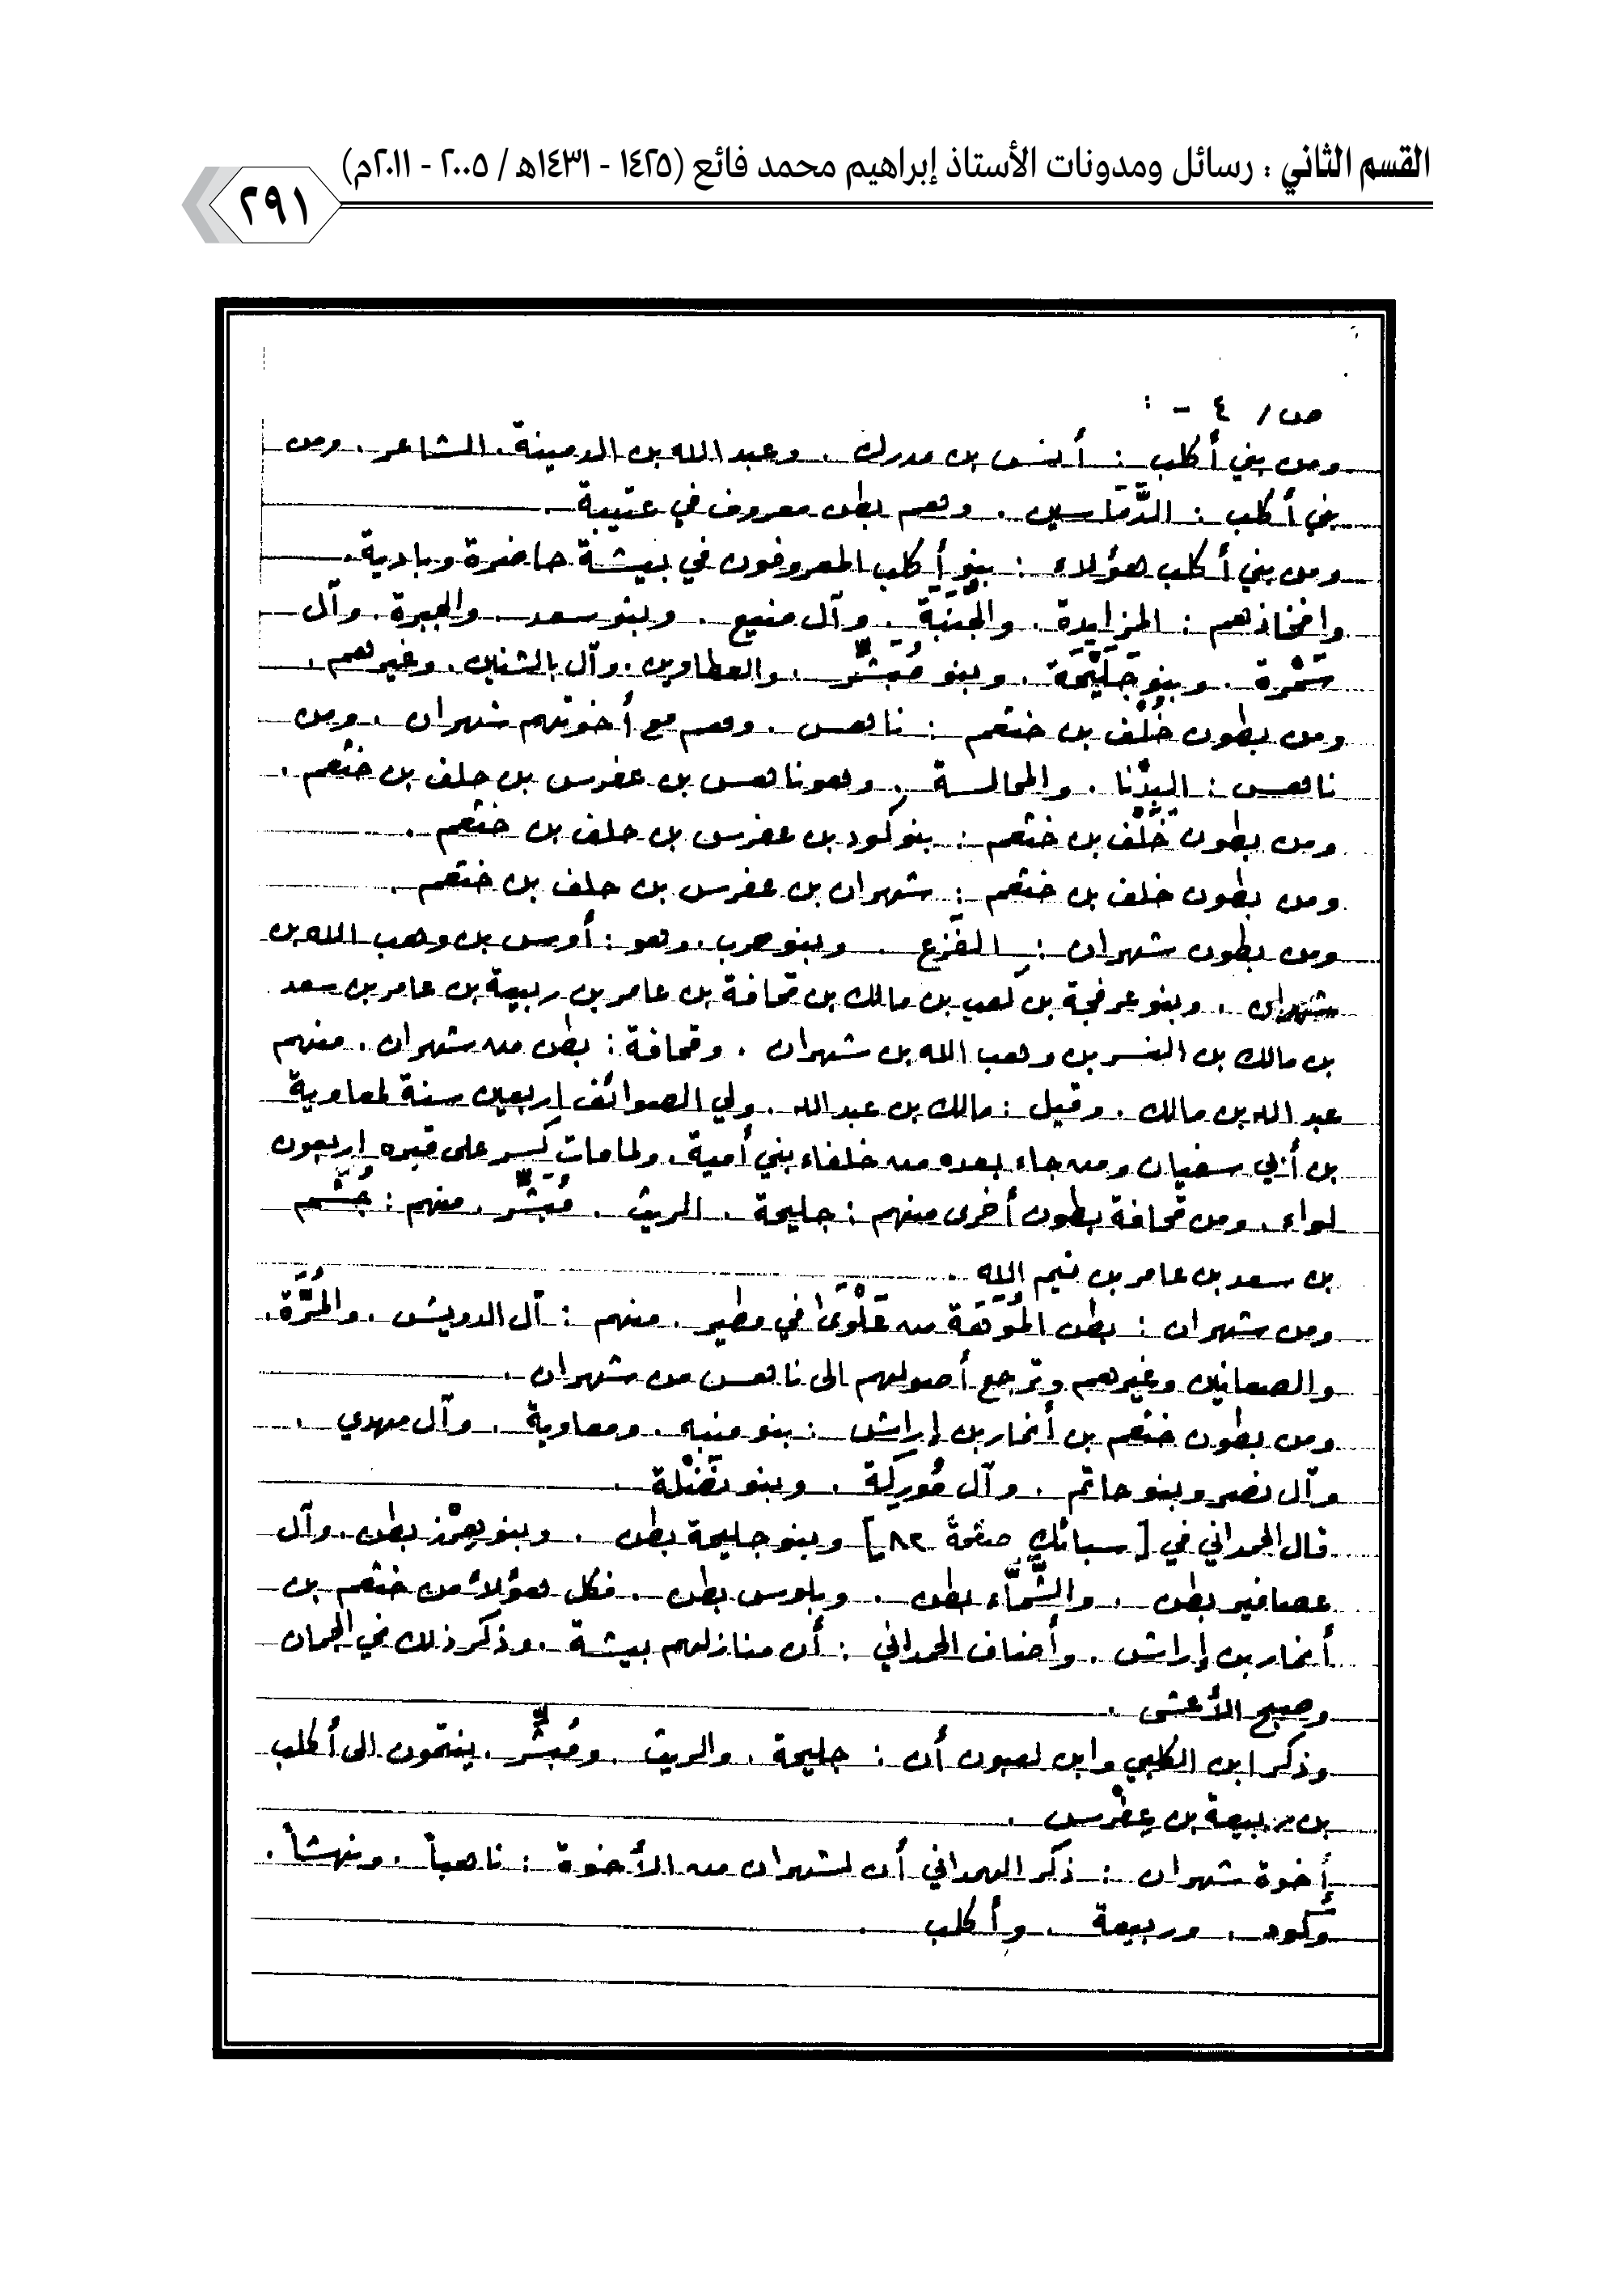 القسم الثاني : رسائل ومدونات الأستاذ إبراهيم محمد فائع (١٤٢٥ - ١٤٣١هـ / ٢٠٠٥ - ٢٠١١م)
٢٩١
ص / ٤ - :
ومن بني أكلب : أنس بن مدرك . وعبد الله بن الدمينة . الشاعر . ومن
بني أكلب : الدَّمَاسين . وهم بطن معروف في عتيبة .
ومن بني أكلب هؤلاء : بنو أكلب المعروفون في بيشة حاضرة وبادية .
وافخاذهم : المزايدة . والجَنَبَة . وآل منيع . وبنو سعد . والجبرة . وآل
سَمْرة . وبنو جَلَيْحَة . وبنو مُبَشِّر . والعطاوين . وآل بالشنين . وغيرهم .
ومن بطون خُلْف بن خثعم : ناهس . وهم مع أخوتهم شهران . ومن
ناهس : البِدْنا . والمحالسة . وهو ناهس بن عفرس بن حلف بن خثعم .
ومن بطون خُلْف بن خثعم : بنو كود بن عفرس بن حلف بن خثعم .
ومن بطون خلف بن خثعم : شهران بن عفرس بن حلف بن خثعم .
ومن بطون شهران : الفَزع . وبنو حرب . وهو : أوس بن وهب الله بن
شهران . وبنو عرفجة بن كعب بن مالك بن قحافة بن عامر بن ربيعة بن عامر بن سعد
بن مالك بن النسر بن وهب الله بن شهران . وقحافة : بطن من شهران . منهم
عبد الله بن مالك . وقيل : مالك بن عبد الله . ولي الصوائف اربعين سنة لمعاوية
بن أبي سفيان ومن جاء بعده من خلفاء بني أمية . ولما مات كُسر على قبره اربعون
لواء . ومن قحافة بطون أخرى منهم : جليحة . الريث . مُبَشِّر . منهم : جُشَم
بن سعد بن عامر بن تيم الله .
ومن شهران : بطن المُوَهَة من عَلْوَى في مطير . منهم : آل الدويش . والمُرَّة .
والصعانين وغيرهم وترجع أصولهم الى ناهس من شهران .
ومن بطون خثعم بن أنمار بن إراش : بنو منبه . ومعاوية . وآل مهدي .
وآل نصر وبنو حاتم . وآل مُوركة . وبنو نَضْلة .
قال الحمداني في [ سبائك صفحة ٨٢ ] وبنو جليحة بطن . وبنو هِمْز بطن . وآل
عصافير بطن . والشَّمَّاء بطن . وبلوس بطن . فكل هؤلاء من خثعم بن
أنمار بن إراش . وأضاف الحمداني : أن منازلهم بيشة . وذكر ذلك في الجمان
وصبح الأعشى .
وذكر ابن الكلبي وابن لعبون أن : جليحة . والريث . ومُبَشِّر . ينتمون الى أكلب
بن ربيعة بن عِفْرس .
أخوة شهران : ذكر الهمداني أن لشهران من الأخوة : ناهباً . ونهشاً .
وكود . وربيعة . وأكلب .